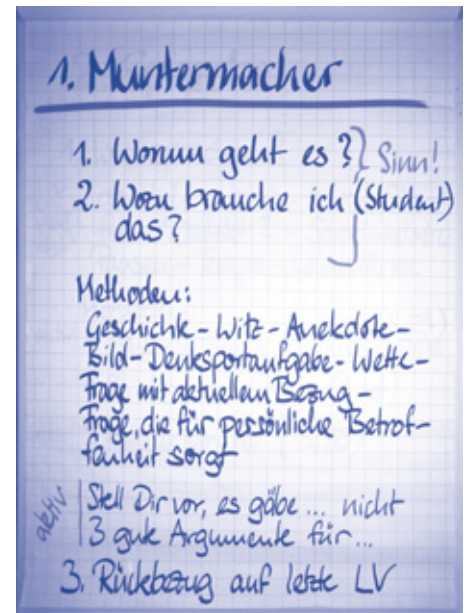 1. Muntermacher
1. Worum geht es? } Sinn!
2. Wozu brauche ich (Student)
das?
Methoden:
Geschichte - Witz - Anekdote -
Bild - Denksportaufgabe - Wette -
Frage mit aktuellem Bezug -
Frage, die für persönliche Betrof-
fenheit sorgt
aktiv
Stell Dir vor, es gäbe ... nicht
3 gute Argumente für ...
3. Rückbezug auf letzte LV